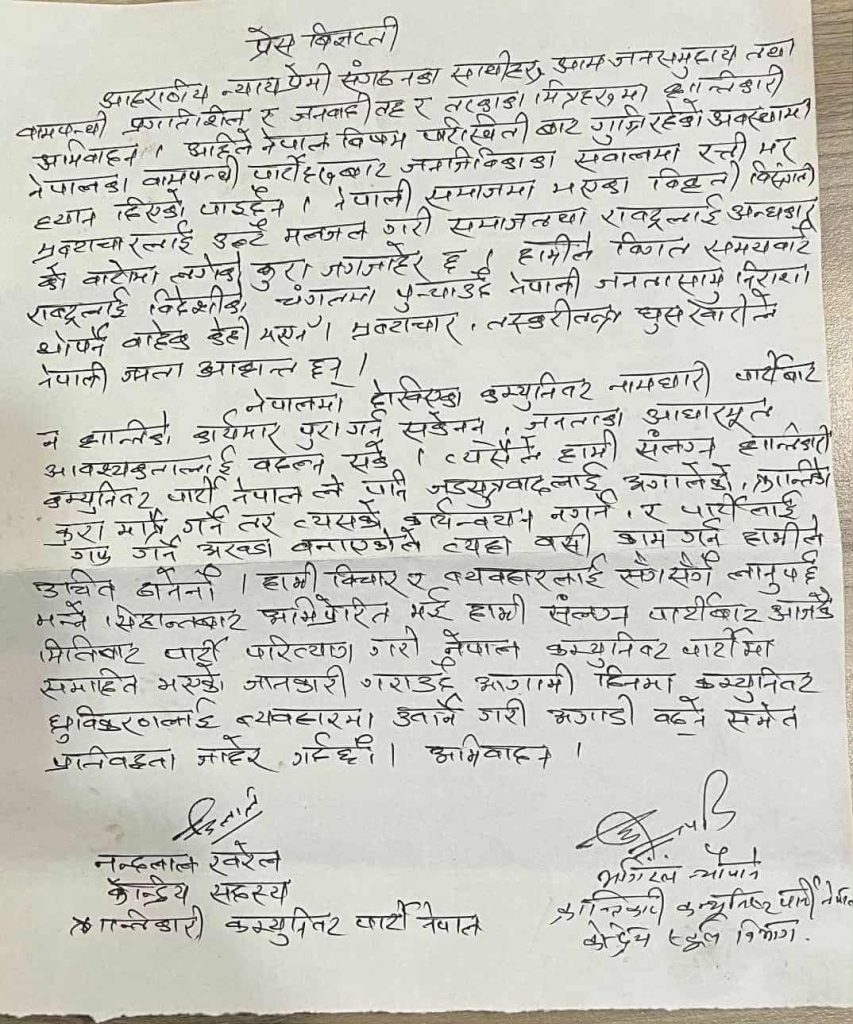 प्रेस बिज्ञप्ती
आदरणीय न्यायप्रेमी संगठनका साथीहरु, आम जनसमुदाय तथा
वामपन्थी प्रगतिशिल र जनवादी तह र तप्काका मित्रहरुमा क्रान्तिकारी
अभिवादन । अहिले नेपाल विषम परिस्थिती बाट गुज्रिरहेको अवस्थामा
नेपालका वामपन्थी पार्टीहरुबाट जनजिविकाका सवालमा रत्ती भर
ध्यान दिएको पाइदैन । नेपाली समाजमा भएका विकृती विसंगती
भ्रष्टाचारलाई उल्टै मलजल गरी समाज तथा राष्ट्रलाई अन्धकार
को बाटोमा लगेको कुरा जगजाहेर छ । हामीले विगत समयबाटै
राष्ट्रलाई विदेशीको चंगुलमा पुर्‍याउदै नेपाली जनतासामु निराशा
थोपर्नै बाहेक केही भएन । भ्रष्टाचार, तस्करीतन्त्र घुसखोरीले
नेपाली जनता आक्रान्त छन् ।
नेपालमा देखिएका कम्युनिष्ट नामधारी पार्टीबाट
न क्रान्तिको कार्यभार पुरा गर्न सकेनन, जनताका आधारभूत
आवश्यकतालाई सके । त्यसैले हामी संलग्न क्रान्तिकारी
कम्युनिष्ट पार्टी नेपाल ले पनि जडसुत्रवादलाई अगालेको, क्रान्तिको
कुरा मात्रै गर्ने तर त्यसको कार्यन्वयन नगर्ने, र पार्टीलाई
गफ गर्ने अखडा बनाएकोले त्यहा बसी काम गर्न हामीले
उचित ठानेनौ । हामी विचार र व्यवहारलाई सँगसँगै लानुपर्छ
भन्ने सिद्दान्तबाट अभिप्रेरित भई हामी संलग्न पार्टीबाट आजकै
मितिबाट पार्टी परित्याग गरी नेपाल कम्युनिष्ट पार्टीमा
समाहित भएको जानकारी गराउदै आगामी दिनमा कम्युनिष्ट
ध्रुविकरणलाई व्यवहारमा उतार्ने गरी अगाडी बढ्ने समेत
प्रतिवद्दता जाहेर गर्दछौ । अभिवादन ।
नन्दलाल खरेल
केन्द्रिय सदस्य
क्रान्तिकारी कम्युनिष्ट पार्टी नेपाल
न्यौपाने
क्रान्तिकारी कम्युनिष्ट पार्टी नेपाल
केन्द्रिय स्कुल विभाग.